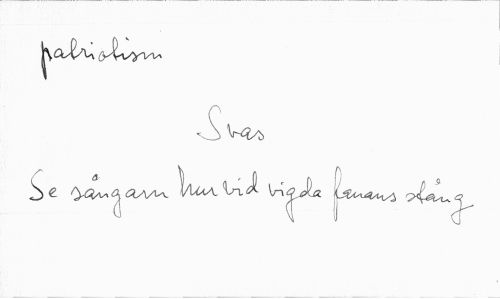 patriotism
Svas
Se sångarn hur vid vigda fanans stång